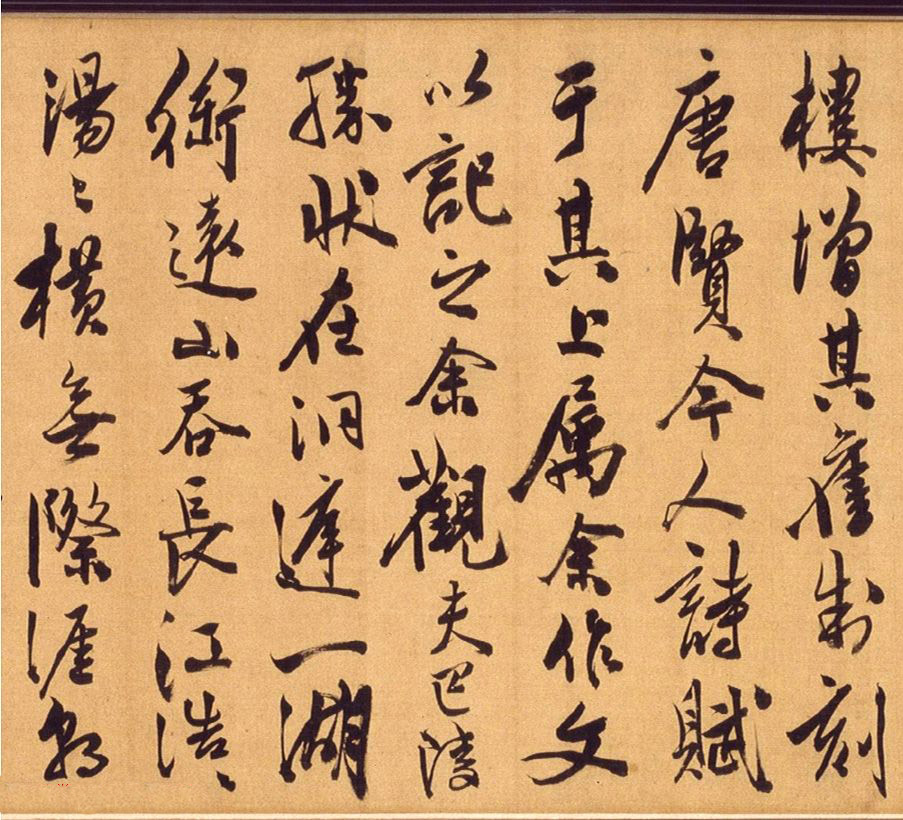 樓增其舊制刻
唐賢今人詩賦
于其上属余作文
以記之余觀夫巴陵
勝狀在洞庭一湖
銜遠山吞長江浩〻
湯〻橫無際涯朝